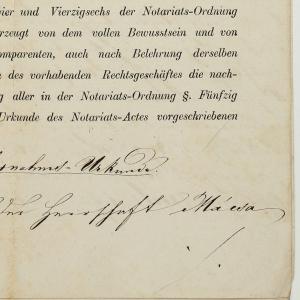 vier und Vierzigsechs der Notariats-Ordnung
erzeugt von dem vollen Bewusstsein und von
omparenten, auch nach Belehrung derselben
n des vorhabenden Rechtsgeschäftes die nach-
g aller in der Notariats-Ordnung §. Fünfzig
Urkunde des Notariats-Actes vorgeschriebenen
Urkunde.
der Herrschaft Mácsa